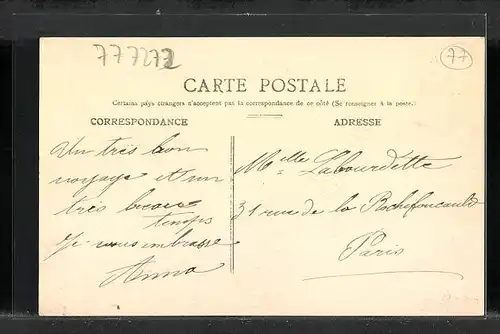 777272
77
CARTE POSTALE
Certains pays étrangers n'acceptent pas la correspondance de ce côté (Se renseigner à la poste.)
CORRESPONDANCE
ADRESSE
Un très bon
voyage et un
très beau
temps
Je vous embrasse
Anna
Melle Labourdette
31 rue de la Rochefoucauld
Paris